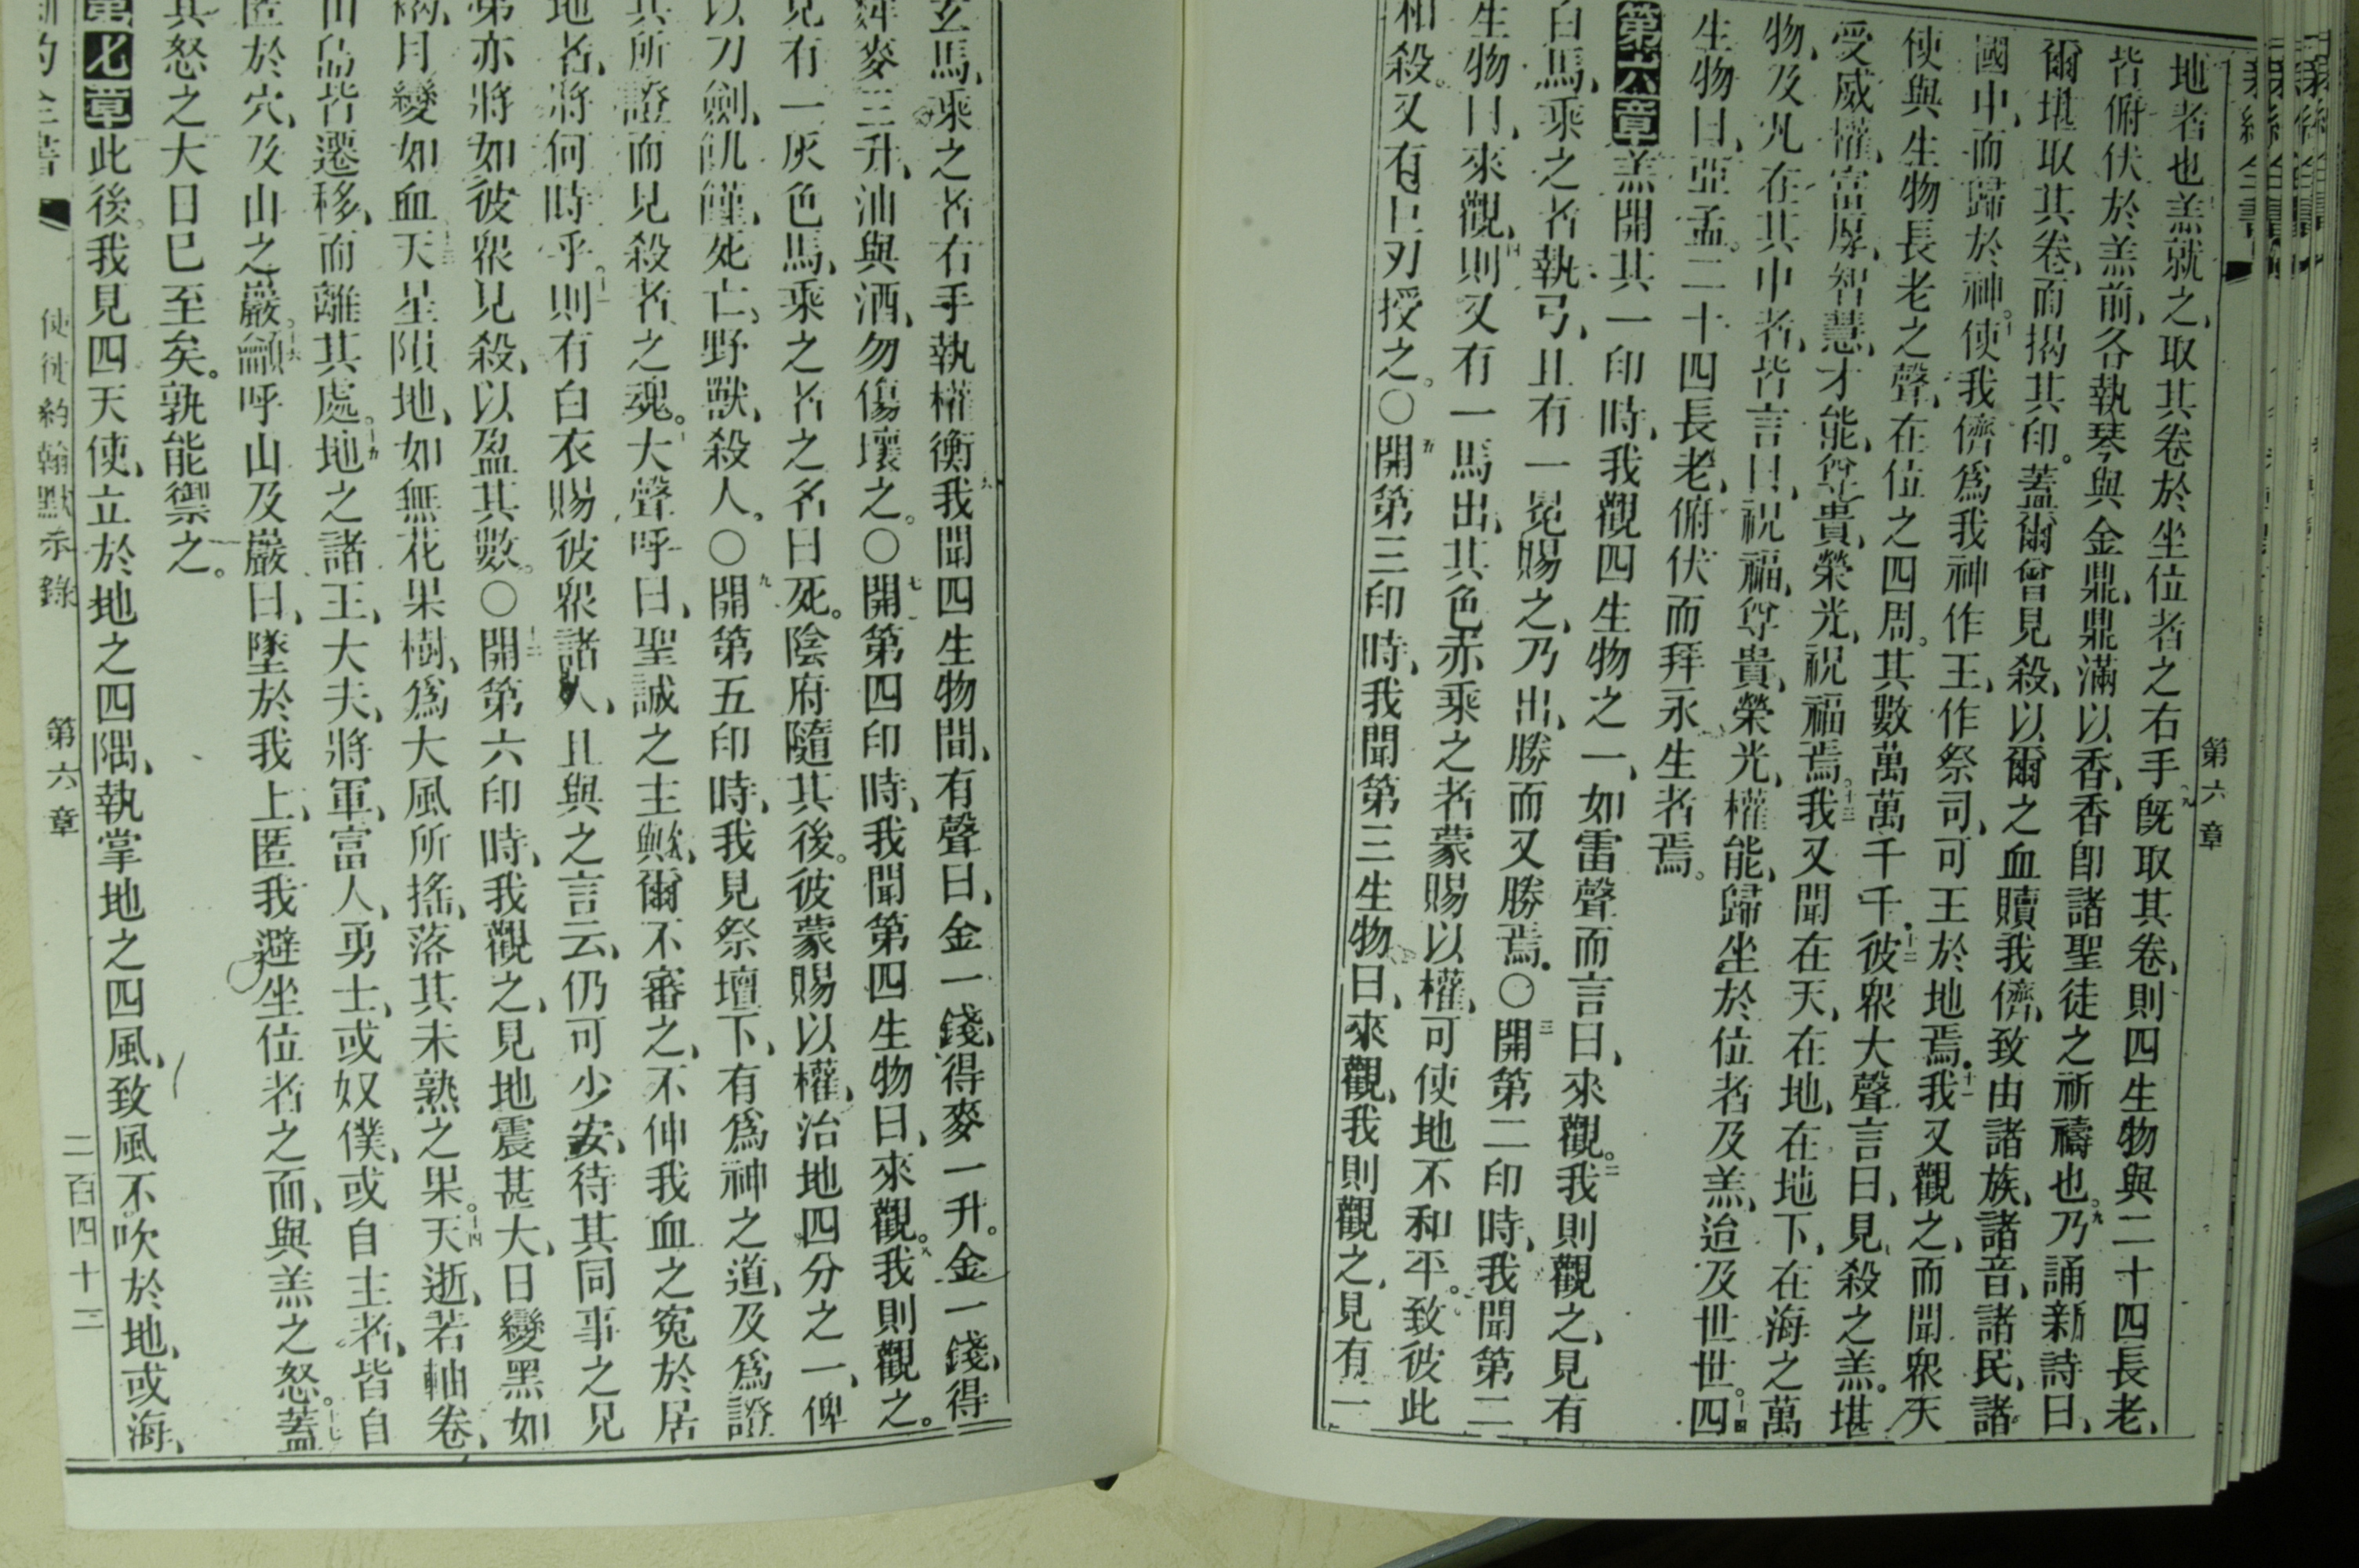 第六章
地者也羔就之、取其卷於坐位者之右手八既取其卷、則四生物與二十四長老、
皆俯伏於羔前、各執琴與金鼎、鼎滿以香、香卽諸聖徒之祈禱也。九乃誦新詩曰、
爾堪取其卷、而揭其印。蓋爾曾見殺、以爾之血贖我儕、致由諸族、諸音、諸民、諸
國中、而歸於神。十使我儕爲我神作王、作祭司、可王於地焉。十一我又觀之、而聞衆天
使與生物長老之聲、在位之四周。其數萬萬千千。十二彼衆大聲言曰、見殺之羔。堪
受威權、富厚、智慧、才能、尊貴、榮光、祝福焉。十三我又聞在天、在地、在地下、在海之萬
物、及凡在其中者、皆言曰、祝福、尊貴、榮光、權能、歸坐於位者及羔、迨及世世。十四四
生物曰、亞孟。二十四長老、俯伏而拜永生者焉。
第六章羔開其一印時、我觀四生物之一、如雷聲而言曰、來觀。二我則觀之、見有
白馬、乘之者執弓、且有一冕賜之、乃出、勝而又勝焉。○三開第二印時、我聞第二
生物曰、來觀、四則又有一馬出、其色赤乘之者蒙賜以權、可使地不和平。致彼此
相殺。又有巨刃授之。○五開第三印時、我聞第三生物曰、來觀、我則觀之、見有一
玄馬、乘之者右手執權衡六我聞四生物間、有聲曰、金一錢、得麥一升。金一錢、得
麰麥三升、油與酒、勿傷壞之。○七開第四印時、我聞第四生物曰、來觀。八我則觀之。
見有一灰色馬、乘之者之名曰死。陰府隨其後。彼蒙賜以權、治地四分之一、俾
以刀劍、飢饉、死亡、野獸、殺人。○九開第五印時、我見祭壇下、有爲神之道、及爲證
其所證而見殺者之魂。十大聲呼曰、聖誠之主歟、爾不審之、不伸我血之寃於居
地者、將何時乎。十一則有白衣賜彼衆諸人、且與之言云、仍可少安、待其同事之兄
弟亦將如彼衆見殺、以盈其數。○十二開第六印時、我觀之、見地震甚大、日變黑如
褐、月變如血十三天星隕地、如無花果樹、爲大風所搖、落其未熟之果。十四天逝、若軸卷、
山島皆遷移、而離其處。十五地之諸王、大夫、將軍、富人、勇士、或奴僕、或自主者、皆自
匿於穴、及山之巖。十六籲呼山及巖曰、墜於我上、匿我避坐位者之面、與羔之怒。十七蓋
其怒之大日已至矣。孰能禦之。
第七章此後。我見四天使、立於地之四隅、執掌地之四風、致風不吹於地、或海、
新約全書 使徒約翰默示錄 第六章 二百四十三